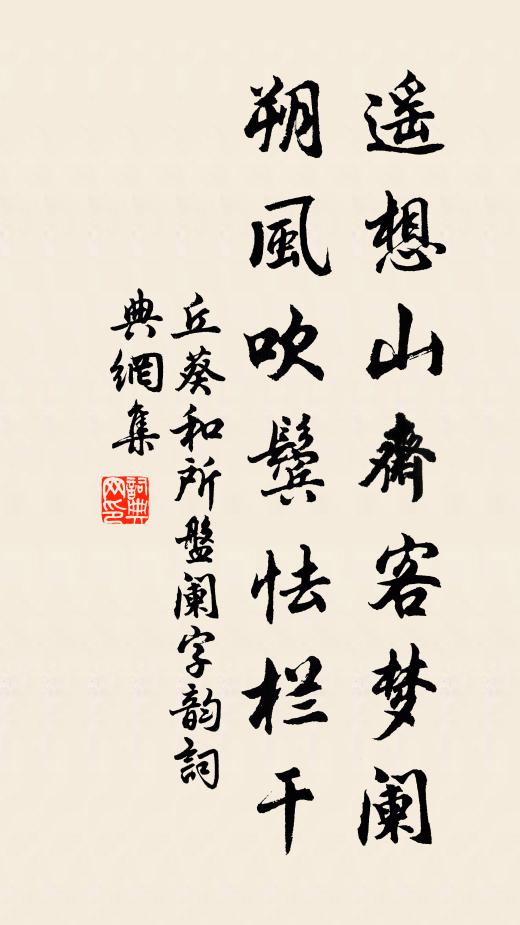 遥想山齋客梦阑
朔風吹鬓怯栏干
丘葵和所盤阑字韵詞
典網集
詞典网印